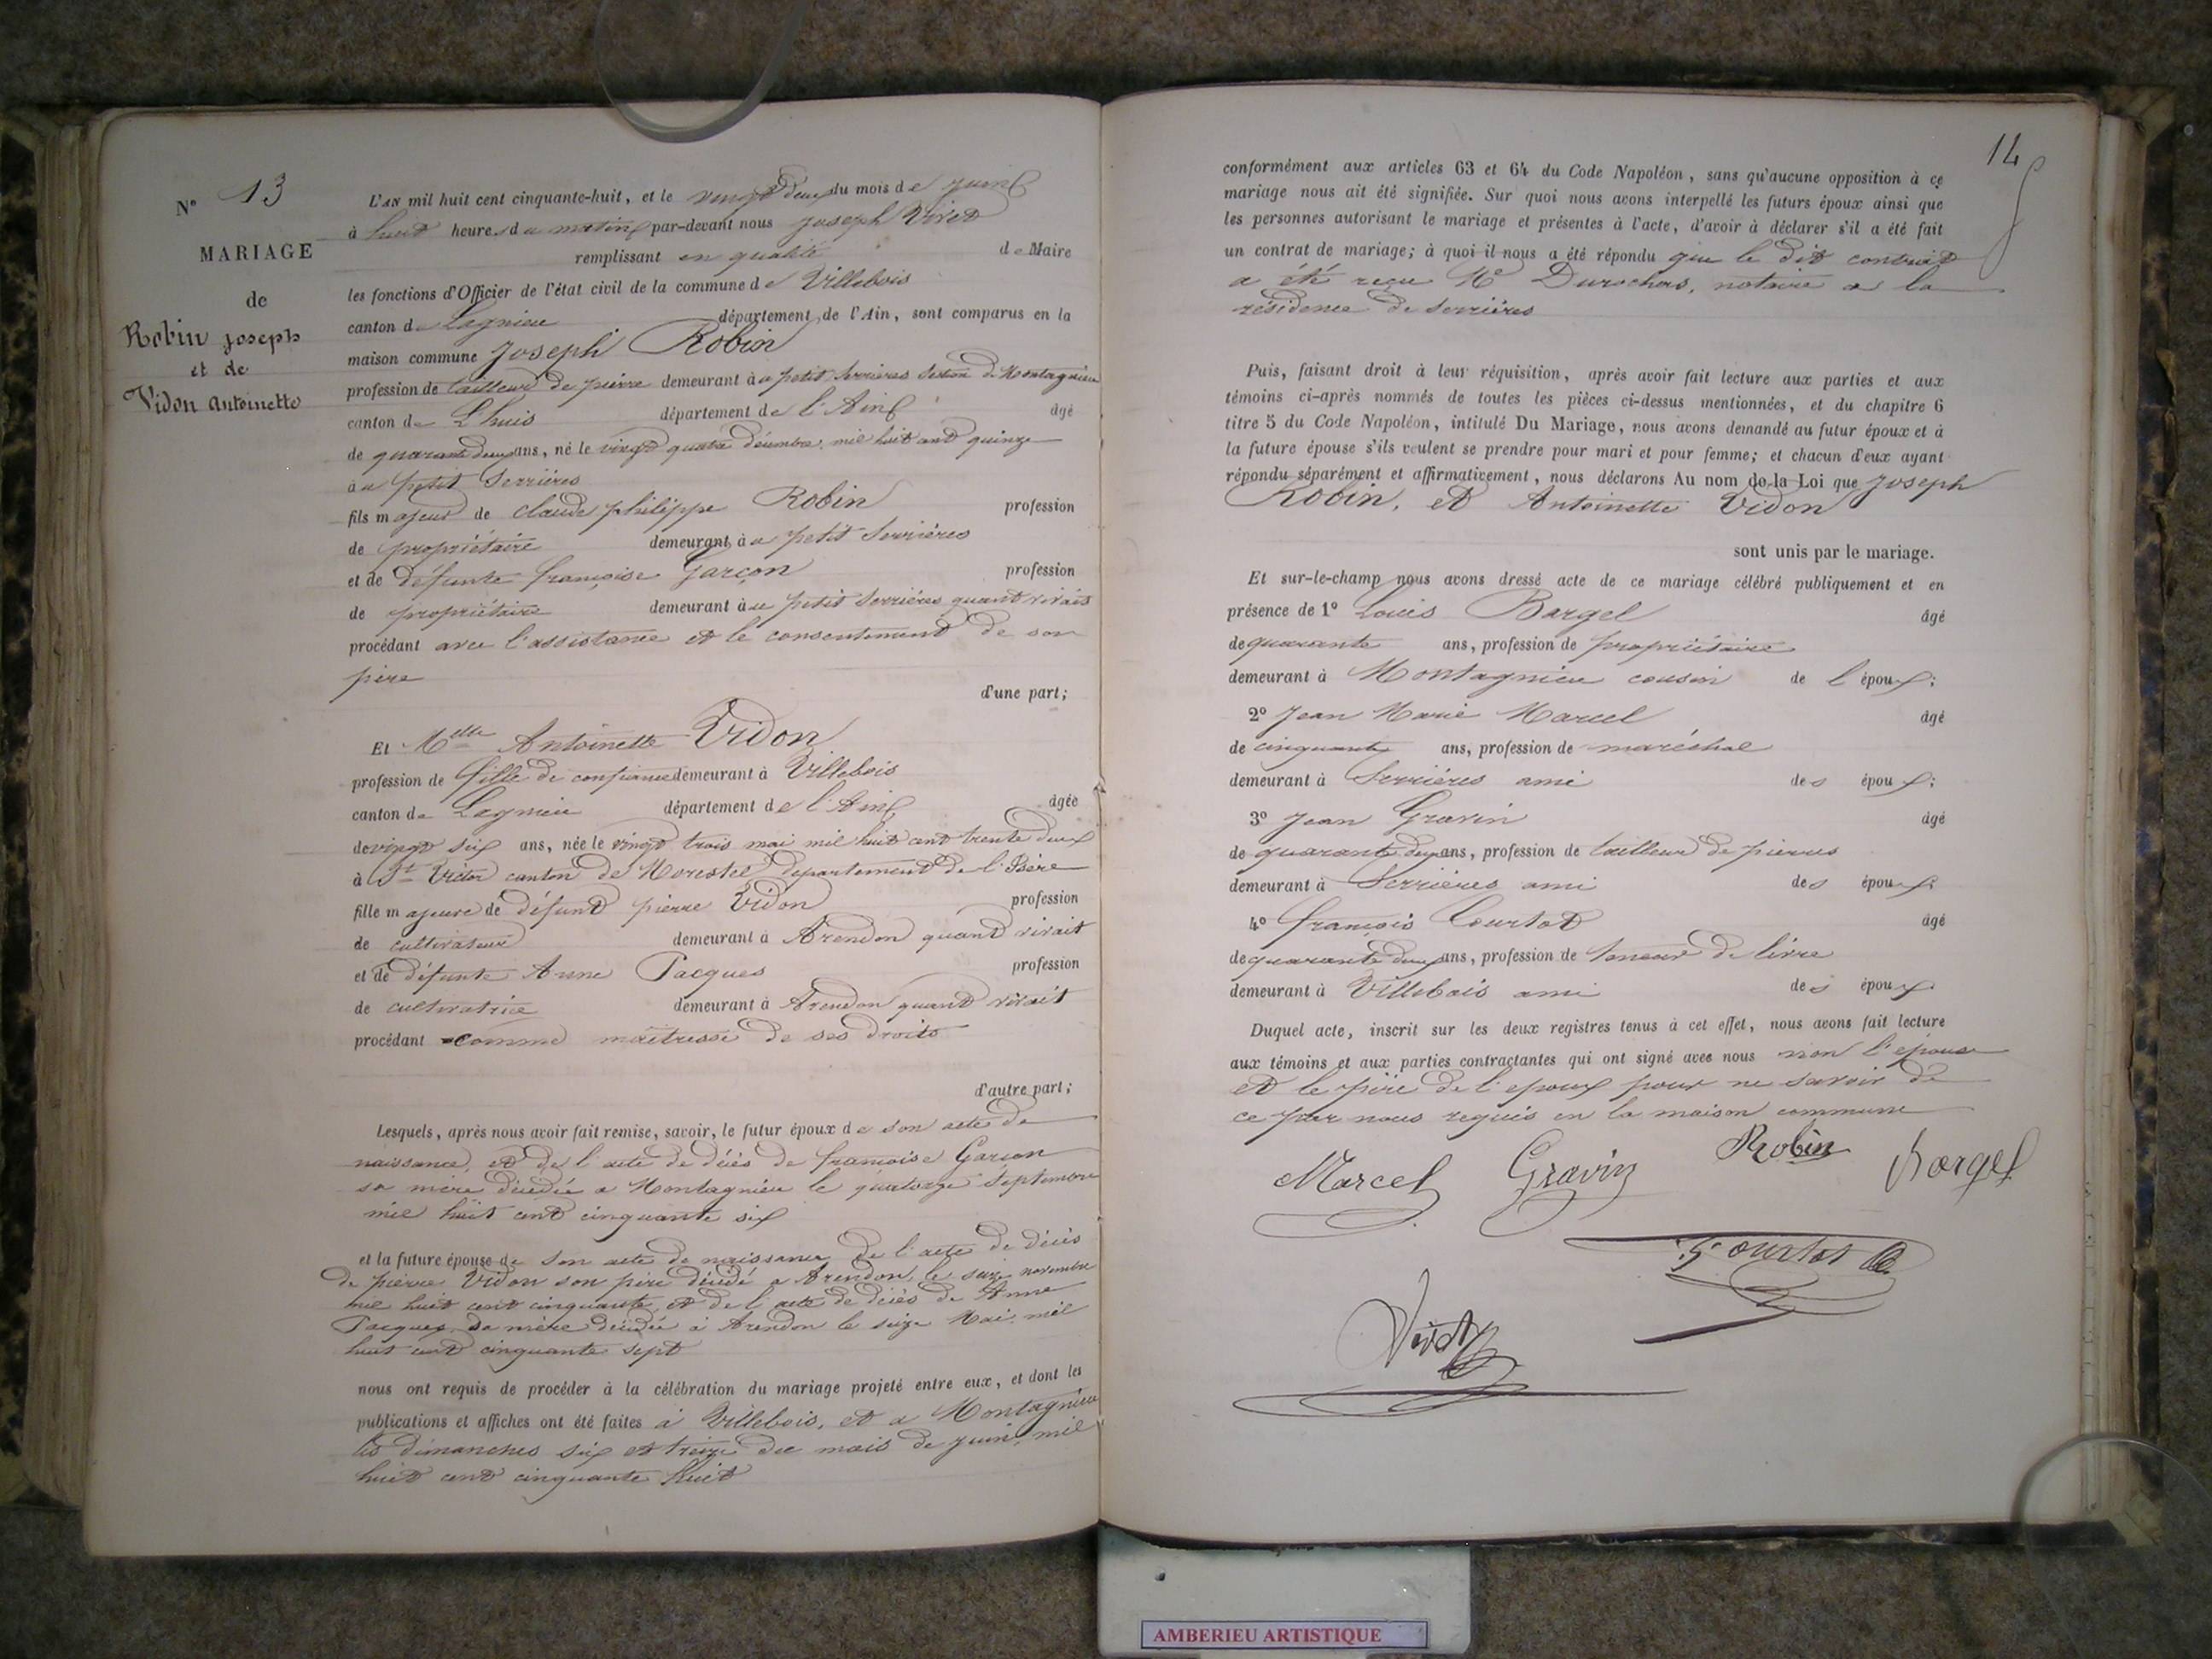 N° 13
MARIAGE
de
Robin Joseph
et de
Vidon Antoinette
L'AN mil huit cent cinquante-huit, et le vingt deux du mois de Juin
à huit heures du matin par-devant nous Joseph Virot
remplissant en qualité de Maire
les fonctions d'Officier de l'état civil de la commune de Villebois
canton de Lagnieu département de l'Ain, sont comparus en la
maison commune Joseph Robin
profession de tailleur de pierre demeurant à au petit Serrières section de Montagnieu
canton de L'huis département de l'Ain âgé
de quarante deux ans, né le vingt quatre décembre mil huit cent quinze
au petit Serrières
fils majeur de claude philippe Robin profession
de propriétaire demeurant à au petit Serrières
et de défunte françoise Garçon profession
de propriétaire demeurant à au petit Serrières quant vivait
procédant avec l'assistance et le consentement de son
père
d'une part;
Et Melle Antoinette Vidon
profession de fille de confiance demeurant à Villebois
canton de Lagnieu département de l'Ain âgée
de vingt six ans, née le vingt trois mai mil huit cent trente deux
à St Victor canton de Morestel département de l'Isère
fille majeure de défunt pierre Vidon profession
de cultivateur demeurant à Arendon quand vivait
et de défunte Anne Pacques profession
de cultivatrice demeurant à Arendon quand vivait
procédant comme maîtresse de ses droits
d'autre part;
Lesquels, après nous avoir fait remise, savoir, le futur époux de son acte de
naissance, et de l'acte de décès de françoise Garçon
sa mère décédée a Montagnieu le quatorze Septembre
mil huit cent cinquante six
et la future épouse de son acte de naissance de l'acte de décès
de pierre Vidon son père décédé a Arendon, le seize novembre
mil huit cent cinquante, et de l'acte de décès de Anne
Pacques sa mère décédée à Arendon le seize Mai mil
huit cent cinquante sept
nous ont requis de procéder à la célébration du mariage projeté entre eux, et dont les
publications et affiches ont été faites à Villebois, et a Montagnieu
les dimanches six et treize du mois de juin, mil
huit cent cinquante huit
14
conformément aux articles 63 et 64 du Code Napoléon, sans qu'aucune opposition à ce
mariage nous ait été signifiée. Sur quoi nous avons interpellé les futurs époux ainsi que
les personnes autorisant le mariage et présentes à l'acte, d'avoir à déclarer s'il a été fait
un contrat de mariage; à quoi il nous a été répondu que le dit contrat
a été reçu Me Durochers, notaire a la
résidence de Serrières
Puis, faisant droit à leur réquisition, après avoir fait lecture aux parties et aux
témoins ci-après nommés de toutes les pièces ci-dessus mentionnées, et du chapitre 6
titre 5 du Code Napoléon, intitulé Du Mariage, nous avons demandé au futur époux et à
la future épouse s'ils veulent se prendre pour mari et pour femme; et chacun d'eux ayant
répondu séparément et affirmativement, nous déclarons Au nom de la Loi que Joseph
Robin, et Antoinette Vidon
sont unis par le mariage.
Et sur-le-champ nous avons dressé acte de ce mariage célébré publiquement et en
présence de 1° Louis Bargel âgé
de quarante ans, profession de propriétaire
demeurant à Montagnieu cousin de l'époux;
2° Jean Marie Marcel âgé
de cinquante ans, profession de maréchal
demeurant à Serrières ami des époux;
3° Jean Gravin âgé
de quarante deux ans, profession de tailleur de pierres
demeurant à Serrières ami des époux;
4° françois Courtot âgé
de quarante deux ans, profession de teneur de livre
demeurant à Villebois ami des époux
Duquel acte, inscrit sur les deux registres tenus à cet effet, nous avons fait lecture
aux témoins et aux parties contractantes qui ont signé avec nous non l'épouse
et le père de l'époux pour ne savoir de
ce par nous requis en la maison commune
Marcel Gravin Robin Bargel
Courtot
Virot
AMBERIEU ARTISTIQUE